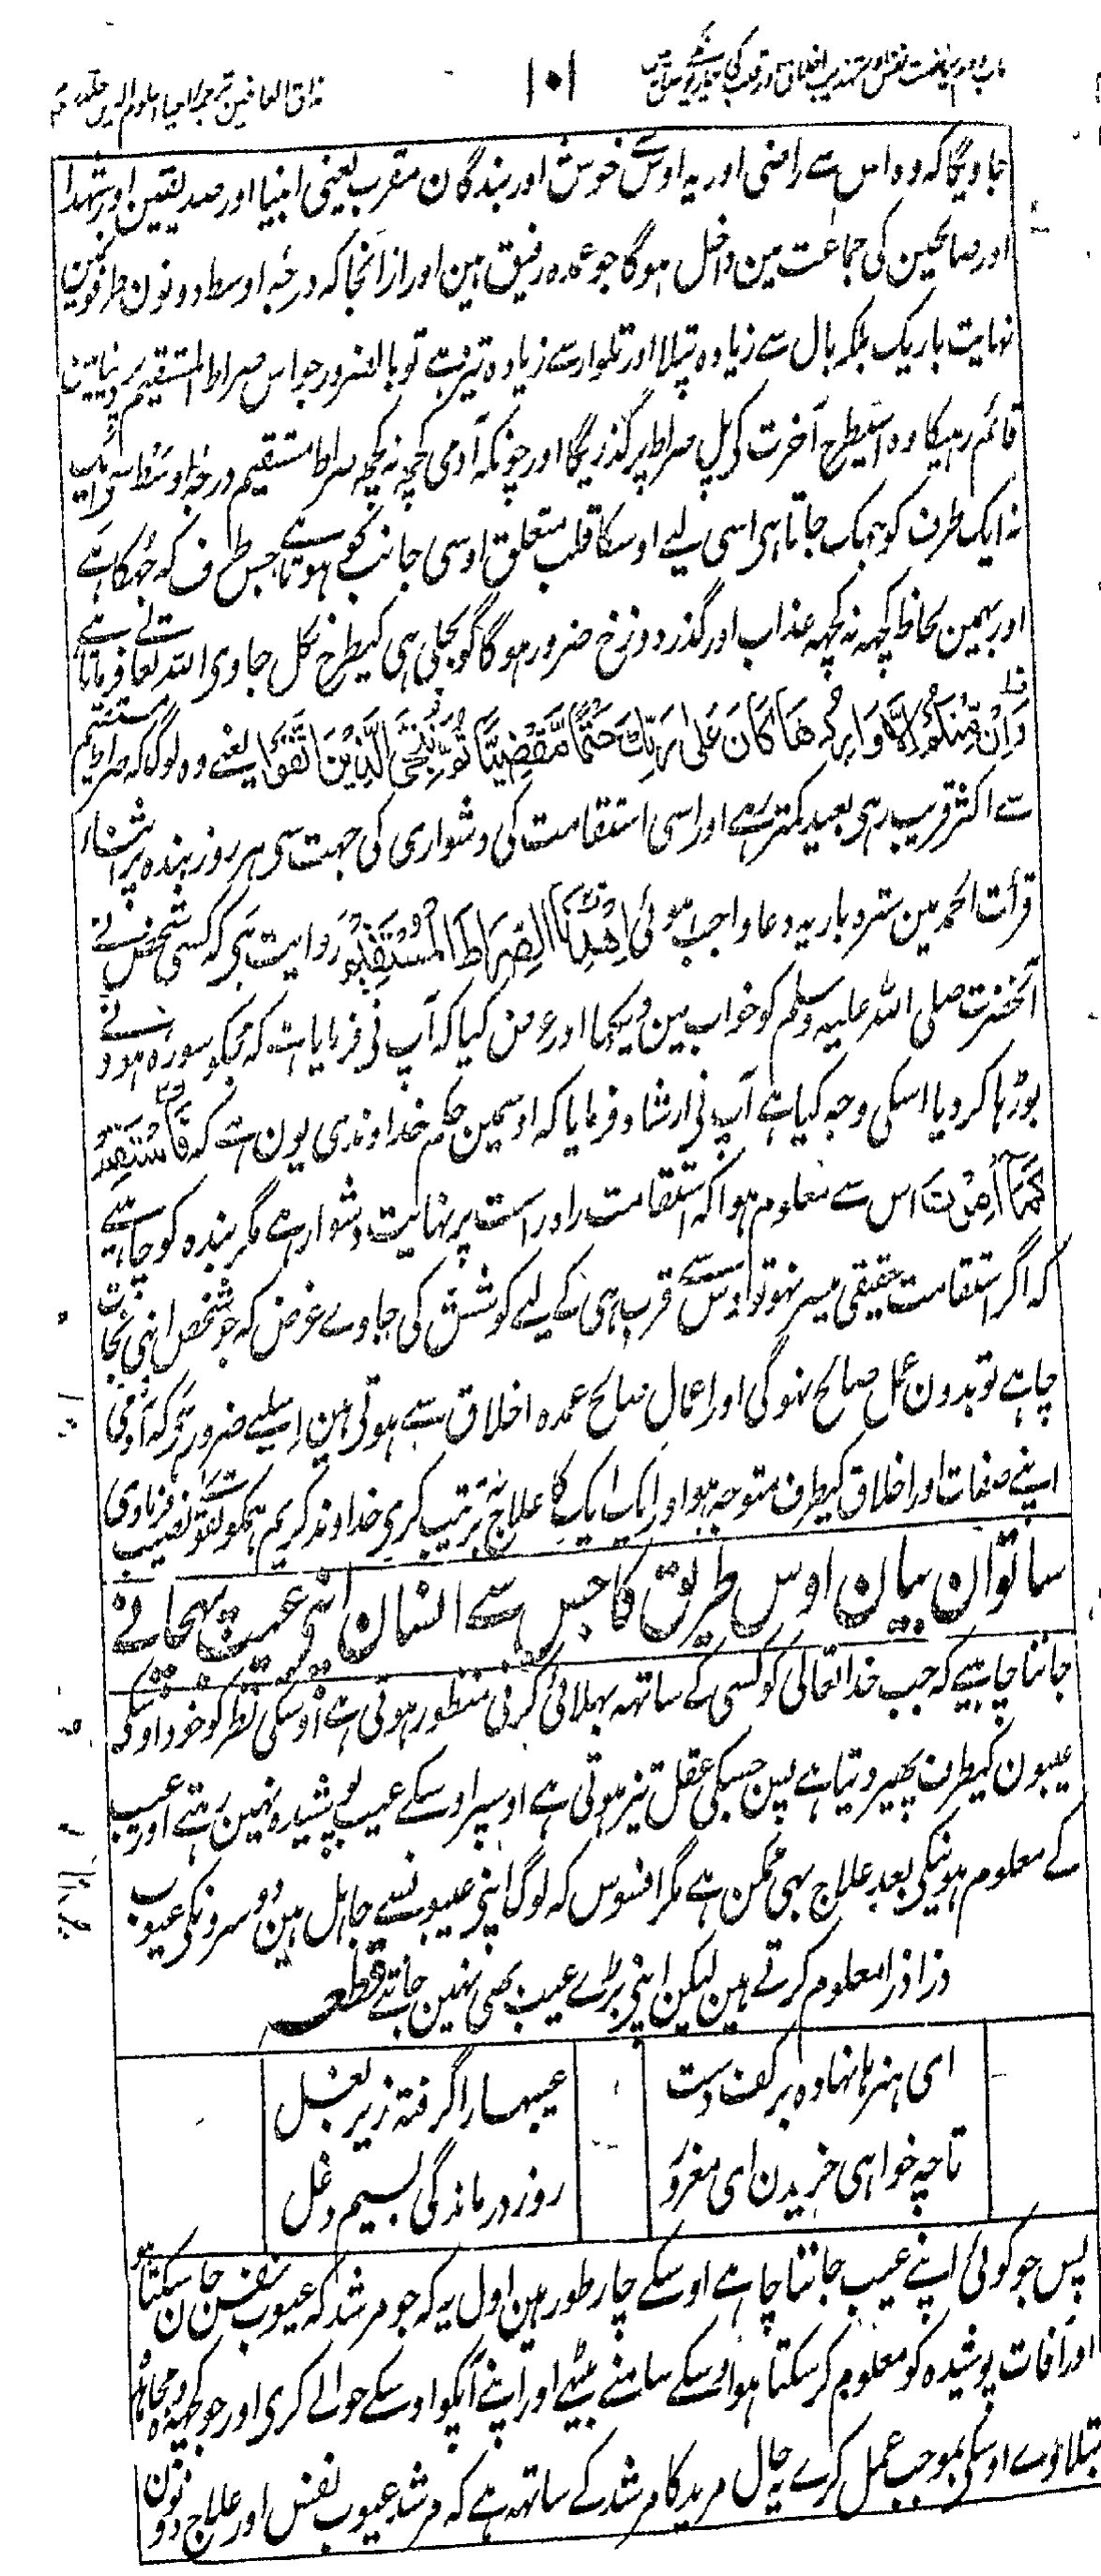 باب دوم ریاضت نفس اور تہذیب اخلاق اور قلب کی
۱۰۱
مذاق العارفین ترجمہ احیاء علوم الدین جلد
جاویگا کہ وہ اس سے راضی اور یہ اوس سے خوش اور بندگان مقرب یعنی انبیا اور صدیقین اور شہدا
اور صالحین کی جماعت مین داخل ہوگا جو عمدہ رفیق ہین اور ازانجا کہ درجۂ اوسط دونون طرفون مین
نہایت باریک بلکہ بال سے زیادہ پتلا اور تلوار سے زیادہ تیز ہے تو بالضرور جو اس صراط المستقیم پر دنیا مین
قائم رہیگا وہ اسیطرح آخرت کی پل صراط پر گذریگا اور چونکہ آدمی کچہ نہ کچہہ صراط مستقیم درجۂ اوسط سے ایک
نہ ایک طرف کو جہک جاتا ہی اسی لیے اوسکا قلب متعلق اوسی جانب کے ہوتا ہے جس طرف کہ جہکا ہے
اور بہمین لحاظ کچہہ نہ کچہہ عذاب اور گذر دوزخ ضرور ہوگا گو بجلی ہی کیطرح نکل جاوی اللہ تعالے فرماتا ہے
وَاِنْ مِّنْكُمْ اِلَّا وَارِدُهَا كَانَ عَلٰى رَبِّكَ حَتْمًا مَّقْضِيًّا ثُمَّ نُنَجِّى الَّذِيْنَ اتَّقَوْا یعنے وہ لوگ کہ صراط مستقیم
سے اکثر قریب رہی بعید کمتر رہے اور اسی استقامت کی دشواری کی جہت سی ہر روز بندہ پر اثناء
قرأت الحمد مین سترہ بار یہ دعا واجب ہوئی اِهْدِنَا الصِّرَاطَ الْمُسْتَقِيْمَ روایت ہی کہ کسی شخص نے
آنحضرت صلی اللہ علیہ وسلم کو خواب مین دیکہا اور عرض کیا کہ آپ نی فرمایا ہے کہ مجکو سورہ ہود نے
بوڑہا کر دیا اسکی وجہ کیا ہے آپ نی ارشاد فرمایا کہ اوسمین حکم خداوندی یون ہے کہ فَاسْتَقِمْ
كَمَا اُمِرْتَ اس سے معلوم ہوا کہ استقامت راہ راست پر نہایت دشوار ہے مگر بندہ کو چاہیے
کہ اگر استقامت حقیقی میسر نہو تو اوس سے قرب ہی کے لیے کوشش کی جاوے غرض کہ جو شخص اپنی نجات
چاہے تو بدون عمل صالح نہو گی اور اعمال صالح عمدہ اخلاق سے ہوتی ہین اسلیے ضرور ہی کہ آدمی
اپنے صفات اور اخلاق کیطرف متوجہ ہو اور ایک ایک کا علاج بترتیب کری خداوند کریم ہمکو تقوے نصیب فرماوی
ساتوان بیان اوس طریق کا جس سے انسان اپنی عیب پہچانے
جاننا چاہیے کہ جب خداتعالی کو کسی کے ساتہہ بہلائی کرنی منظور ہوتی ہے اوسکی نظر کو خود اوسکی
عیبون کیطرف پھیر دیتا ہے پس جسکی عقل تیز ہوتی ہے اوسپر اوسکے عیب پوشیدہ نہین رہتے اور عیب
کے معلوم ہونیکی بعد علاج بہی ممکن ہے مگر افسوس کہ لوگ اپنی عیبونسے جاہل ہین دوسرونکی عیوب
ذرا ذرا معلوم کرتے ہین لیکن اپنی بڑے عیب بھی نہین جانتے قطعہ
ای ہنرہا نہادہ بر کف دست
عیبہا را گرفتہ زیر بغل
تا چہ خواہی خریدن ای مغرور
روز درماندگی بسیم دغل
پس جو کوئی اپنے عیب جاننا چاہے اوسکے چار طور ہین اول یہ کہ جو مرشد کہ عیوب نفس جان سکتا ہو
اور آفات پوشیدہ کو معلوم کر سکتا ہو اوسکے سامنے بیٹھے اور اپنے آپکو اوسکے حوالے کری اور جو کچہہ وہ مجاہدہ
بتلاوے اوسکی بموجب عمل کرے یہ حال مرید کا مرشد کے ساتہہ ہے کہ مرشد عیوب نفس اور علاج دونون